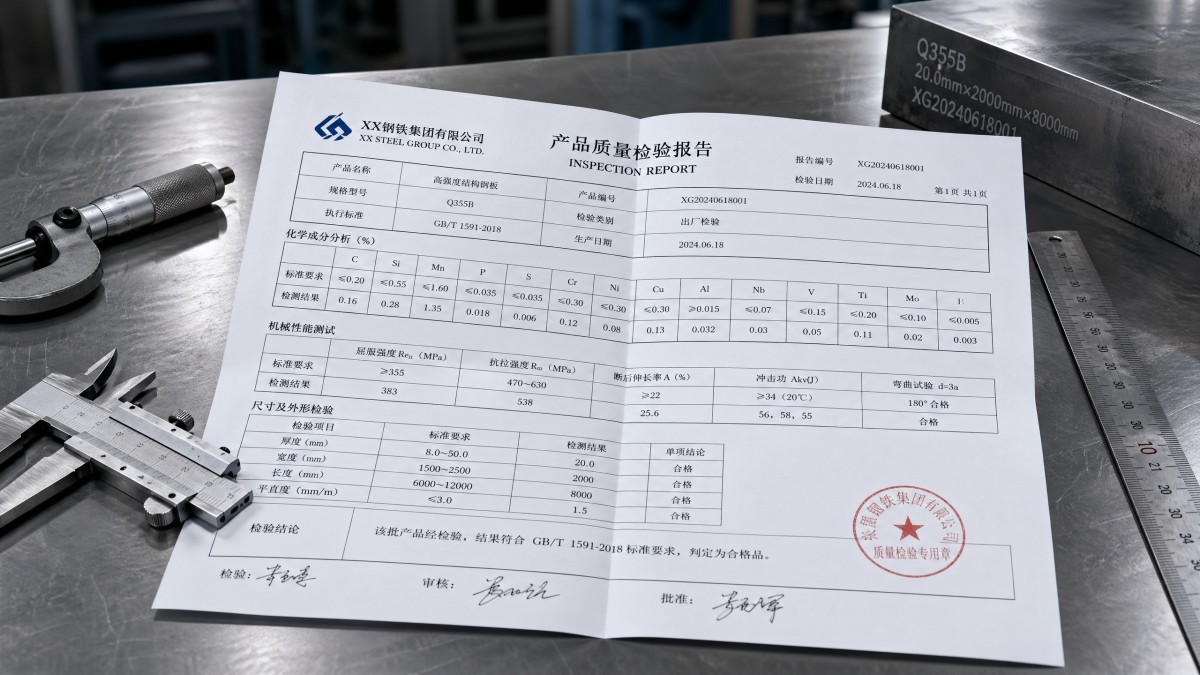 XX钢铁集团有限公司
XX STEEL GROUP CO., LTD.
产品质量检验报告
INSPECTION REPORT
报告编号 XG20240618001
检验日期 2024.06.18 第1页 共1页
产品名称 高强度结构钢板 产品编号 XG20240618001
规格型号 Q355B 检验类别 出厂检验
执行标准 GB/T 1591-2018 生产日期 2024.06.18
化学成分分析（%）
C Si Mn P S Cr Ni Cu Al Nb V Ti Mo
标准要求 ≤0.20 ≤0.55 ≤1.60 ≤0.035 ≤0.035 ≤0.30 ≤0.30 ≤0.30 ≥0.015 ≤0.07 ≤0.15 ≤0.20 ≤0.10 ≤0.005
检测结果 0.16 0.28 1.35 0.018 0.006 0.12 0.08 0.13 0.032 0.03 0.05 0.11 0.02 0.003
机械性能测试
屈服强度 ReH（MPa） 抗拉强度 Rm（MPa） 断后伸长率 A（%） 冲击功 Akv(J) 弯曲试验 d=3a
标准要求 ≥355 470~630 ≥22 ≥34（20℃） 180° 合格
检测结果 383 538 25.6 56，58，55 合格
尺寸及外形检验
检验项目 标准要求 检测结果 单项结论
厚度（mm） 8.0~50.0 20.0 合格
宽度（mm） 1500~2500 2000 合格
长度（mm） 6000~12000 8000 合格
平直度（mm/m） ≤3.0 1.5 合格
检验结论 该批产品经检验，结果符合 GB/T 1591-2018 标准要求，判定为合格品。
钢铁集团有限公司
质量检验专用章
检验：
审核：
批准：
Q355B
20.0mm×2000mm×8000mm
XG20240618001